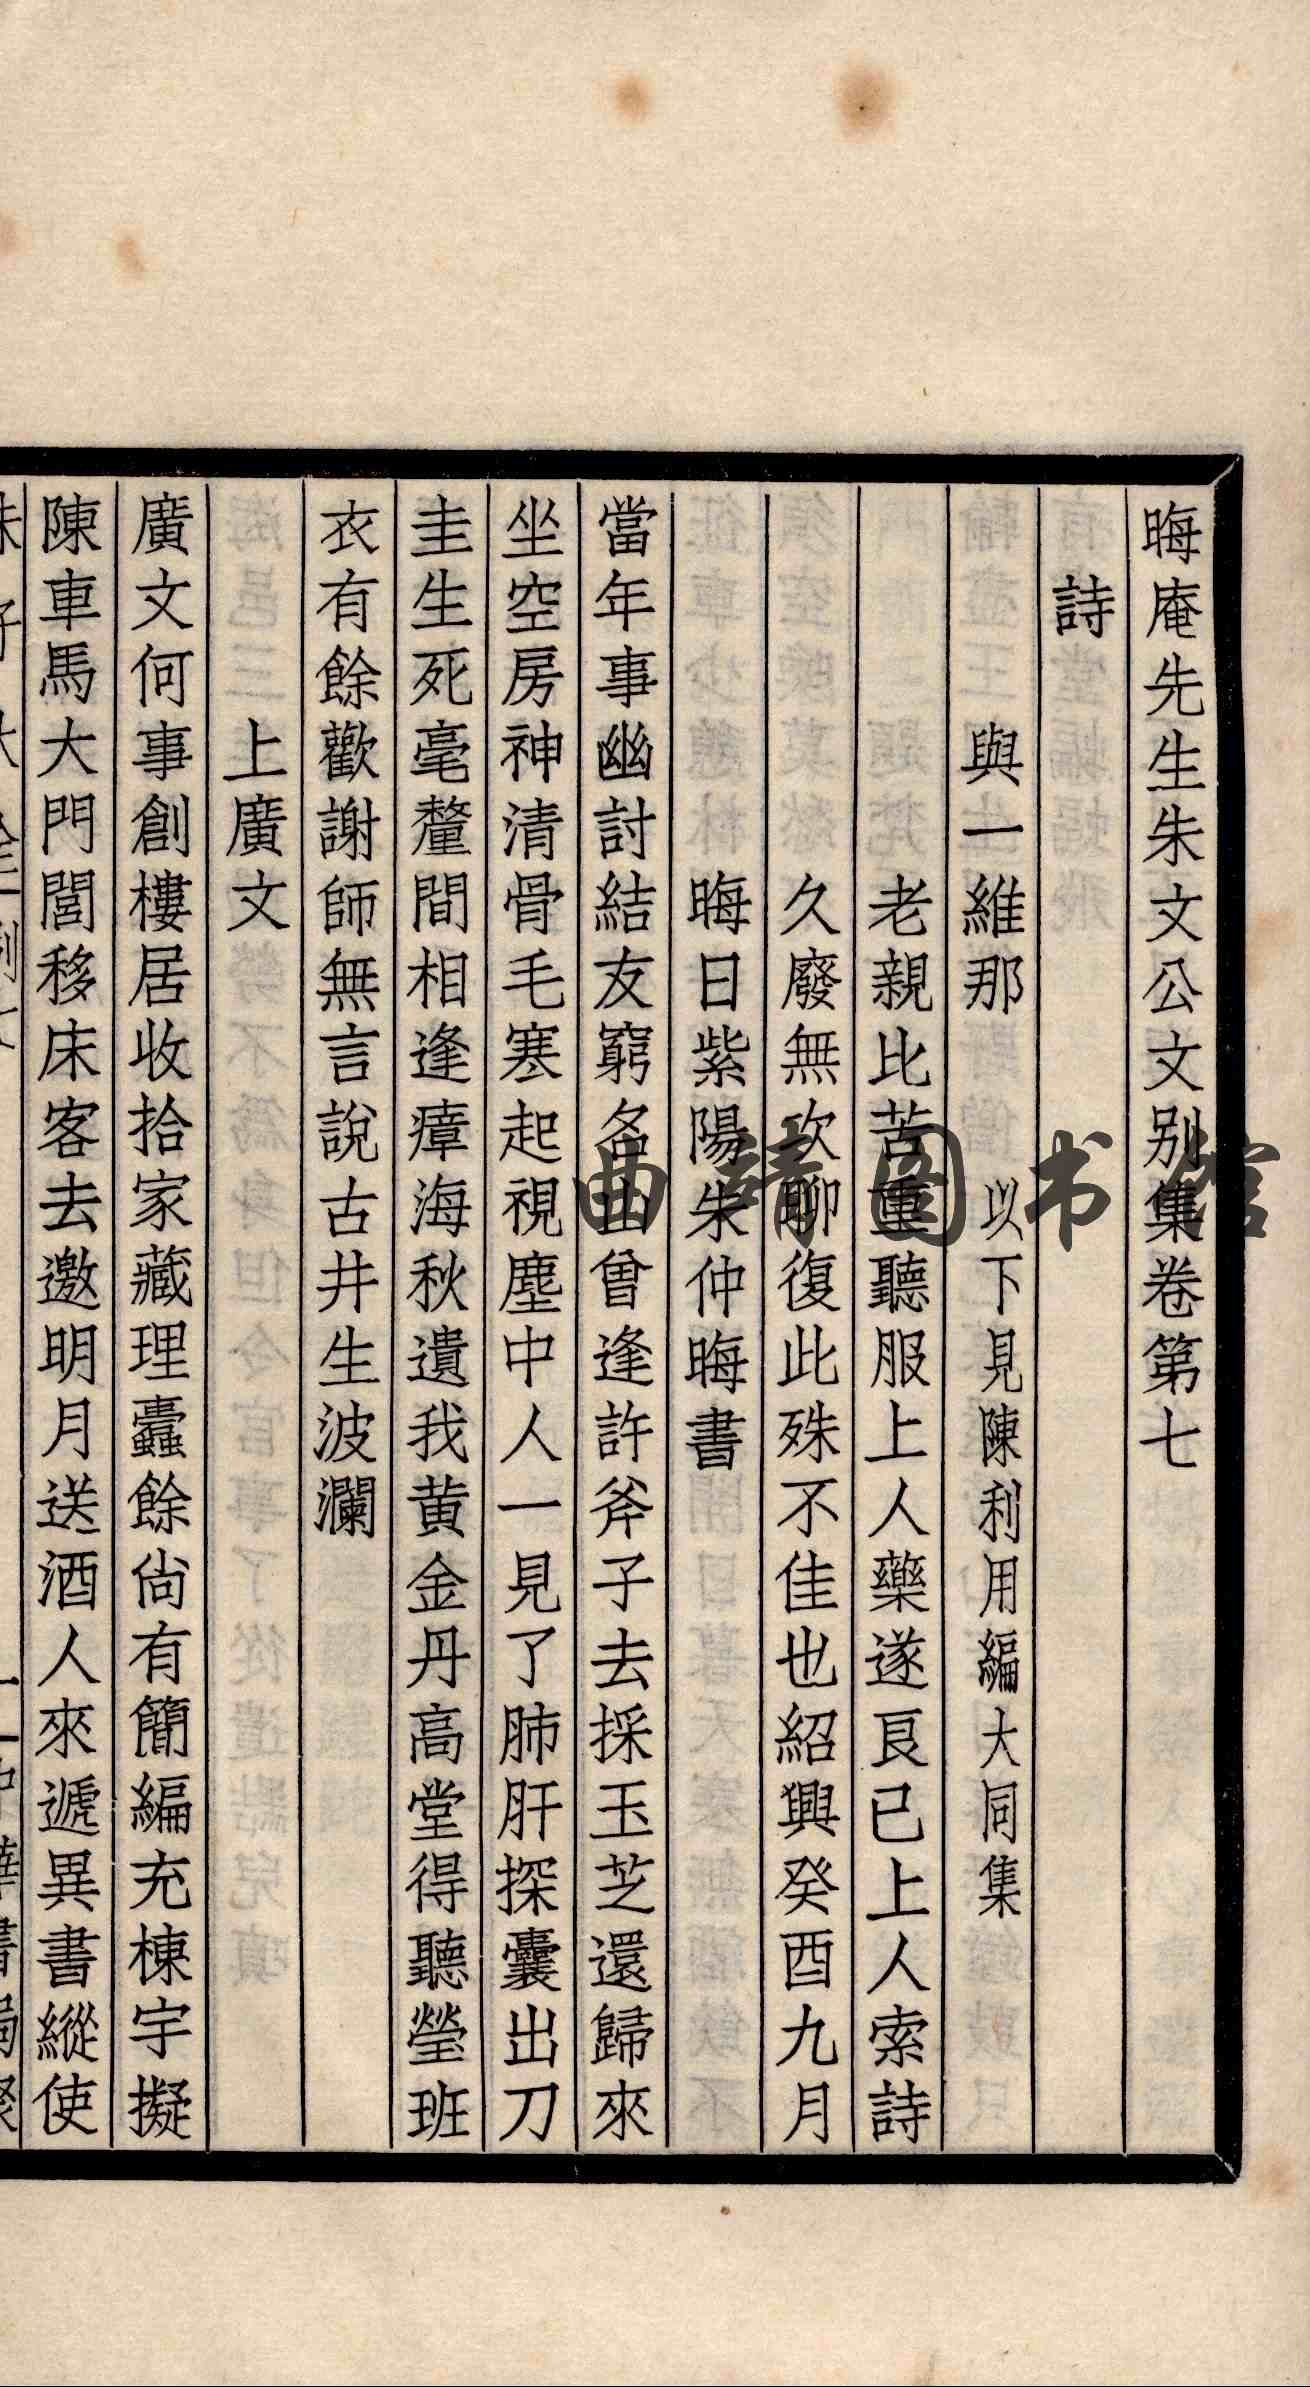 晦庵先生朱文公文別集卷第七
詩
與一維那 以下見陳利用編大同集
老親比苦重聽服上人藥遂良已上人索詩
久廢無次聊復此殊不佳也紹興癸酉九月
晦日紫陽朱仲晦書
當年事幽討結友窮名山曾逢許斧子去採玉芝還歸來
坐空房神清骨毛寒起視塵中人一見了肺肝探囊出刀
圭生死毫釐間相逢瘴海秋遺我黄金丹高堂得聽瑩班
衣有餘歡謝師無言說古井生波瀾
上廣文
廣文何事創樓居收拾家藏理蠹餘尙有簡編充棟宇擬
陳車馬大門閭移床客去邀明月送酒人來遞異書縱使
曲靖图书馆